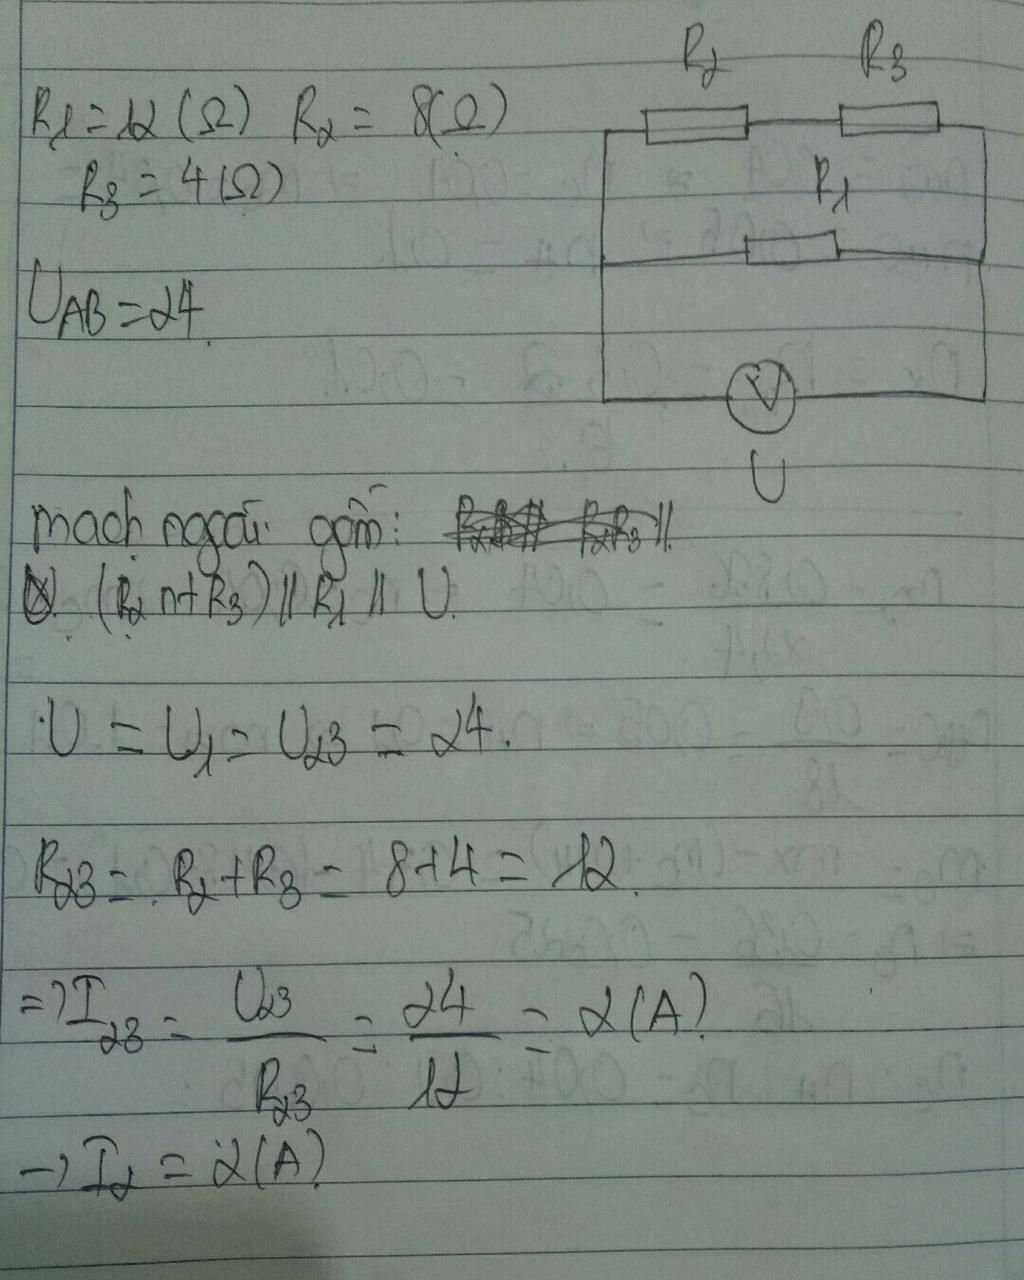 R1 = 12 (Ω) R2 = 8(Ω)
R3 = 4(Ω)
UAB = 24
R2 R3
R1
V
U
mạch ngoài gồm:
(R2 nt R3) // R1 // U.
U = U1 = U23 = 24.
R23 = R2 + R3 = 8+4 = 12.
=> I23 = U23/R23 = 24/12 = 2(A)
-> I2 = 2(A)